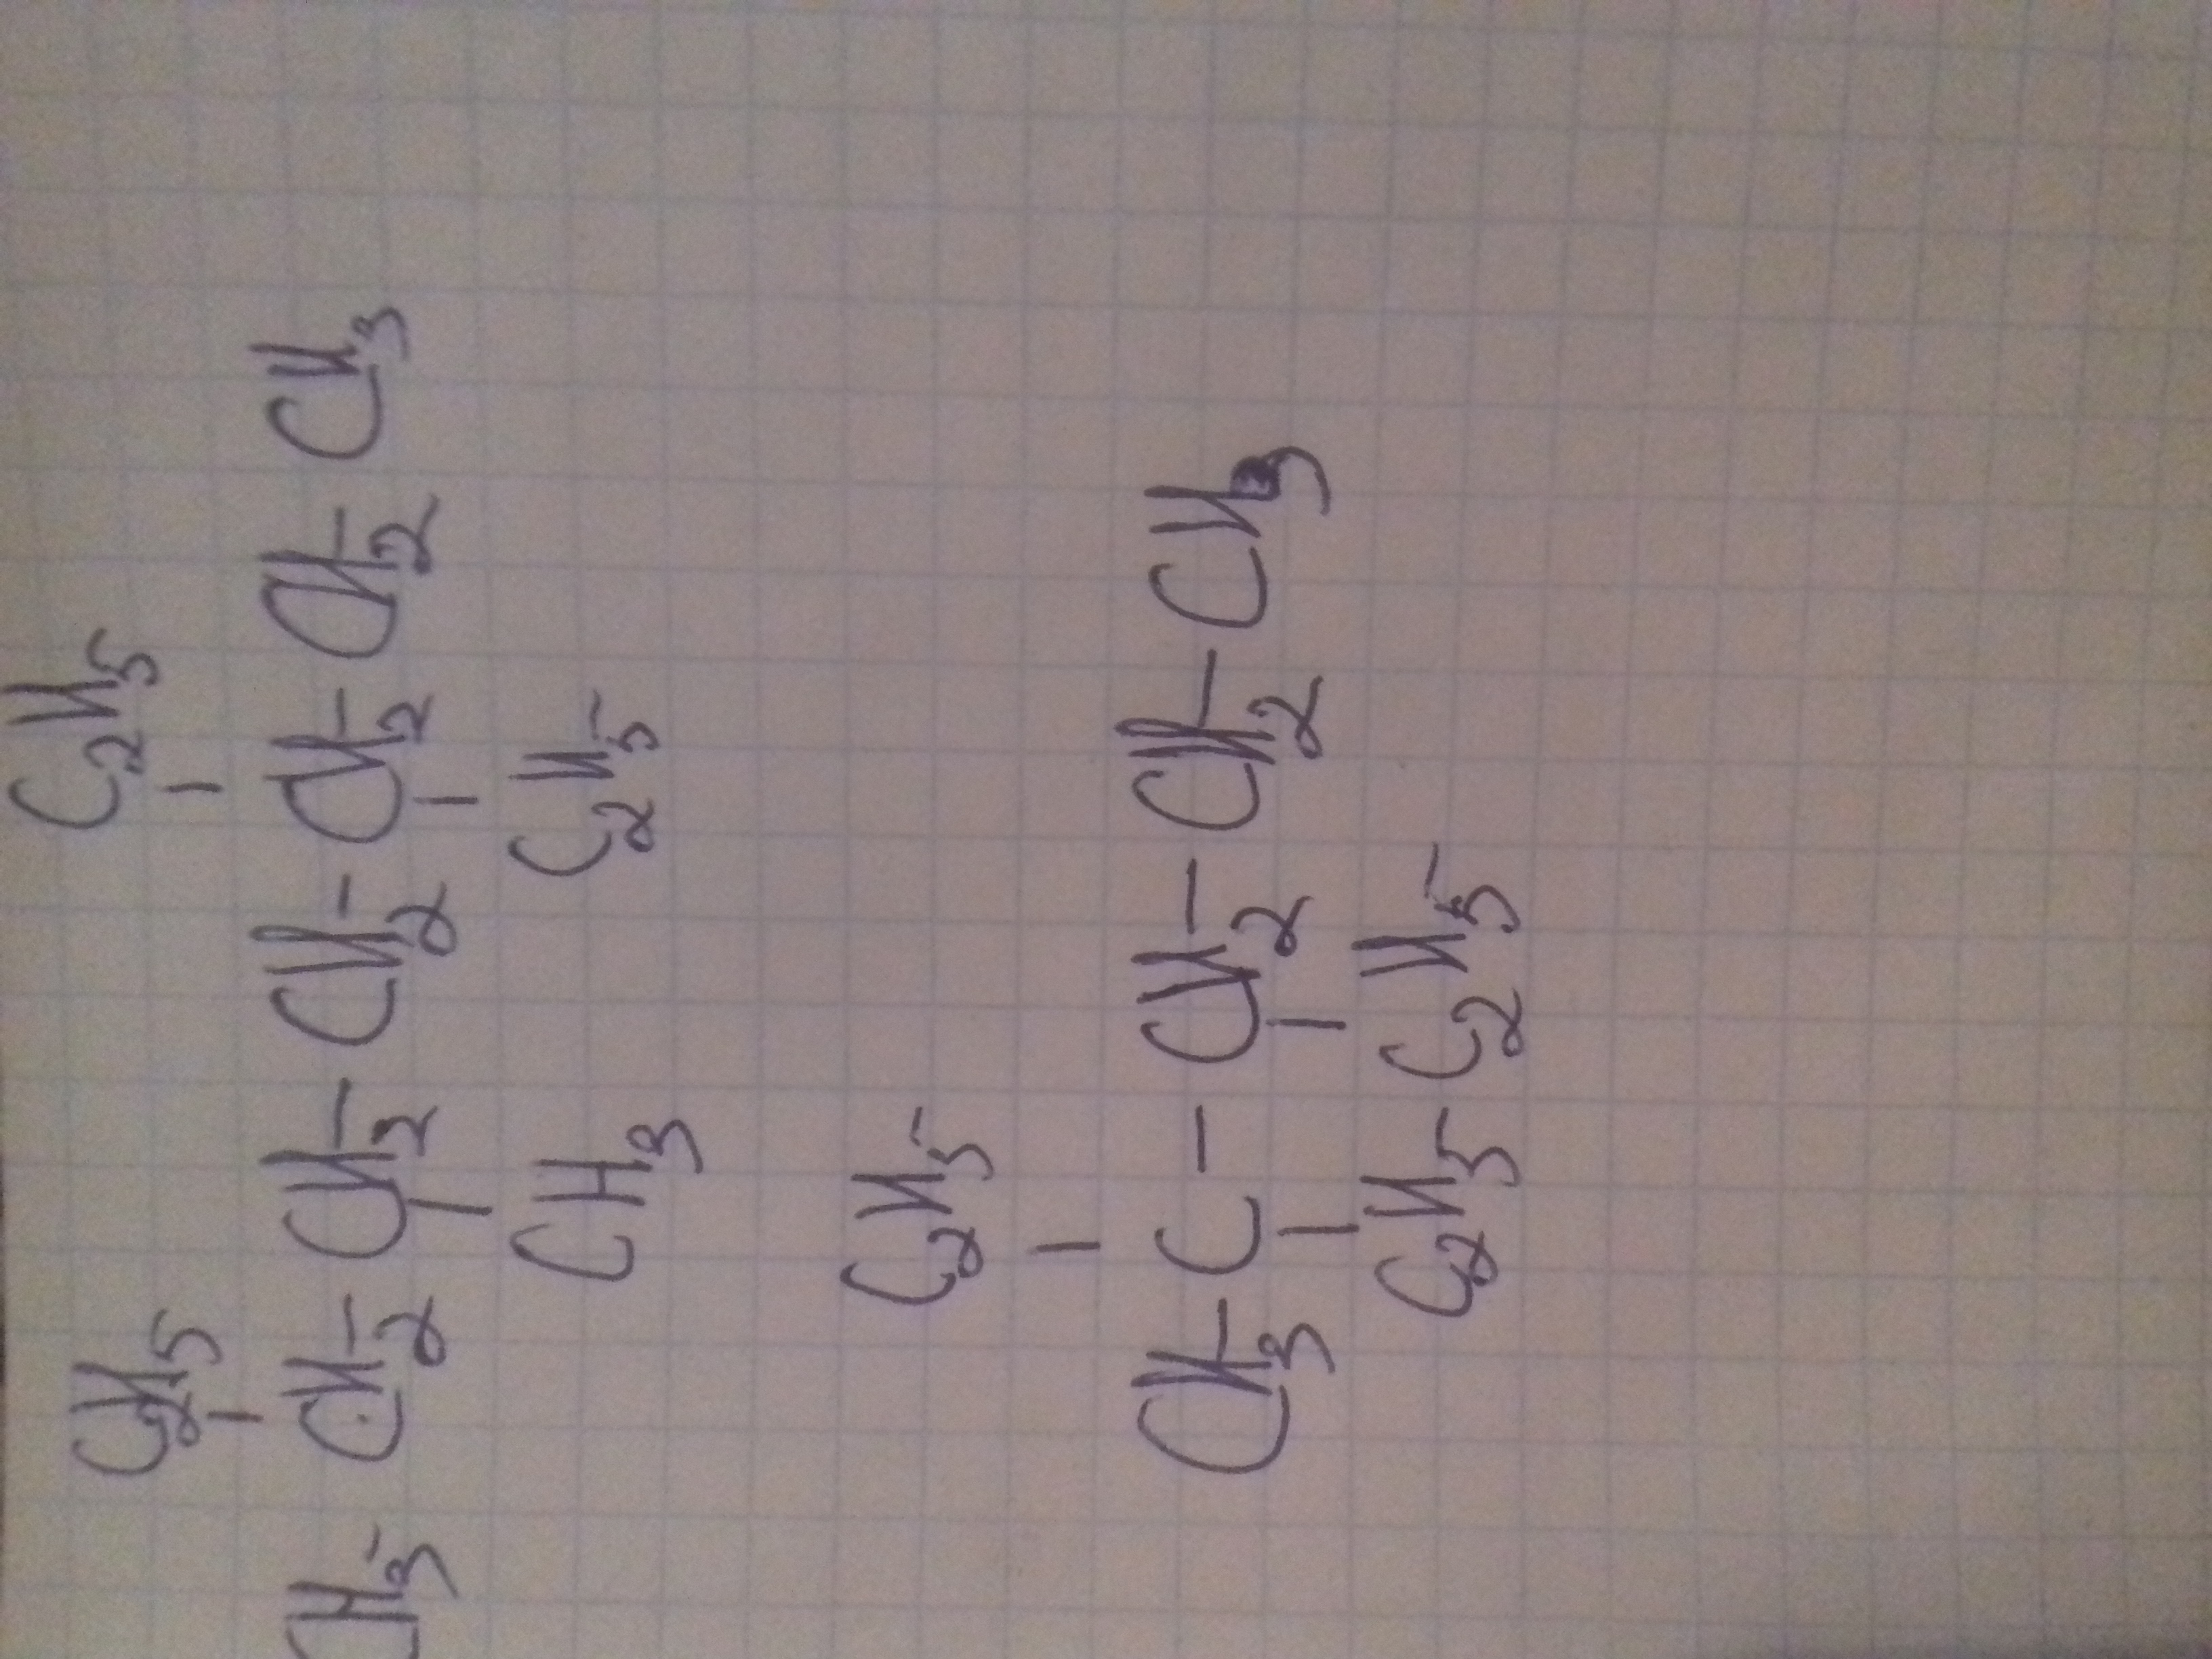 C2H5 C2H5
CH3 - CH2 - CH2 - CH2 - CH2 - CH2 - CH3
CH3 C2H5
C2H5
CH3 - C - CH2 - CH2 - CH3
C2H5 C2H5